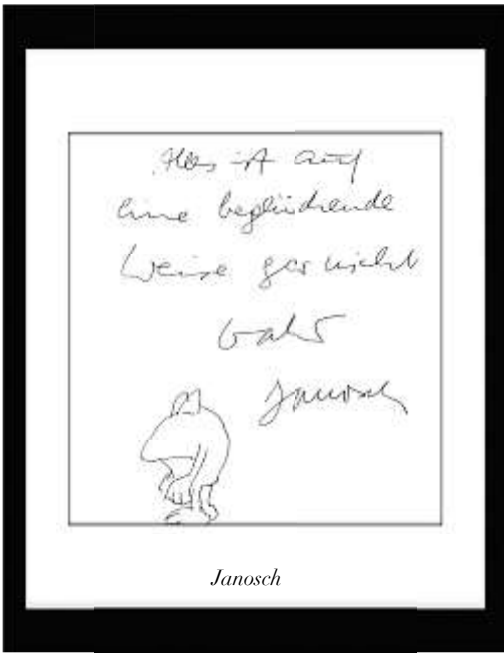 Alles ist auf
eine beglückende
Weise gar nicht
wahr
Janosch
Janosch